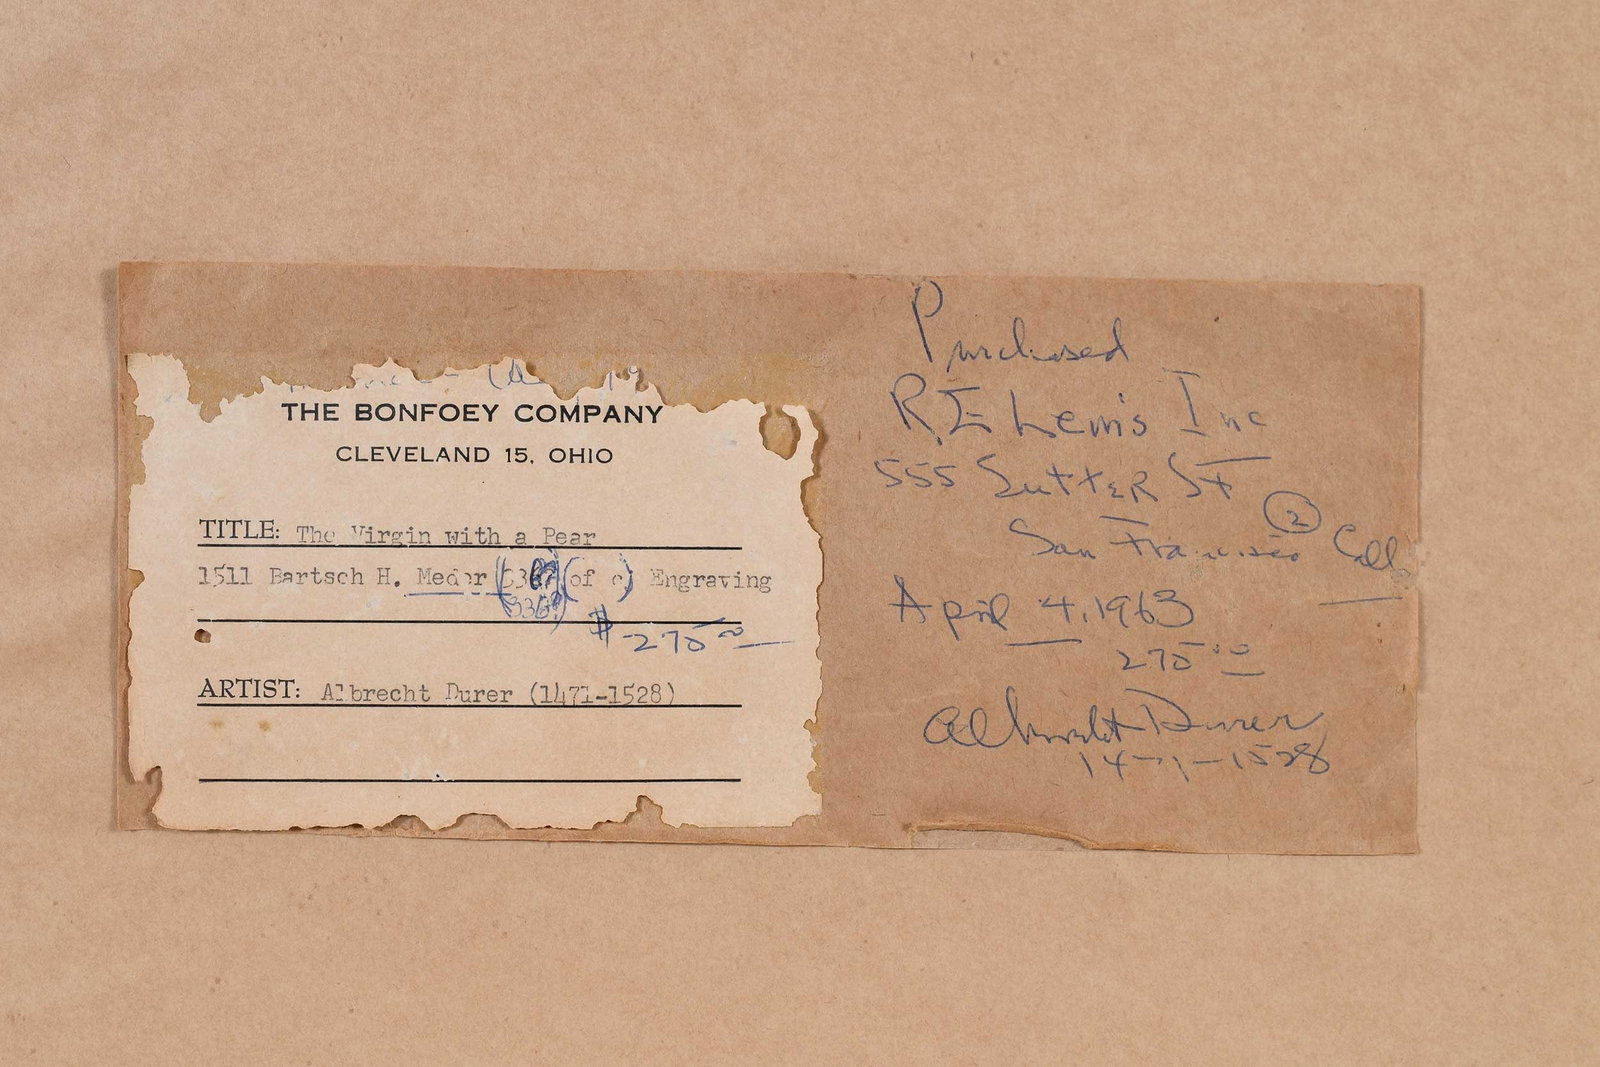 THE BONFOEY COMPANY
CLEVELAND 15, OHIO
TITLE: The Virgin with a Pear
1511 Bartsch H. Meder (of c) Engraving
$ 275.00
ARTIST: Albrecht Durer (1471-1528)
Purchased
R.E Lewis Inc
555 Sutter St
San Francisco (2) Call
April 4, 1963
275.00
Albrecht Durer
1471-1528